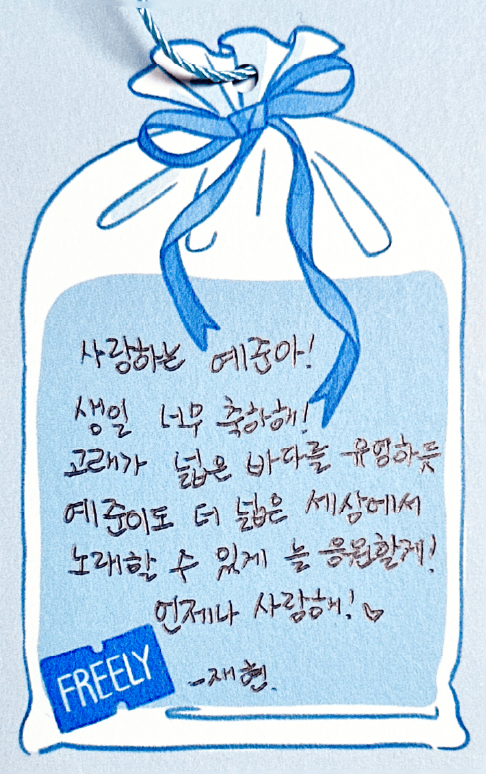 사랑하는 예준아!
생일 너무 축하해!
고래가 넓은 바다를 유영하듯
예준이도 더 넓은 세상에서
노래할 수 있게 늘 응원할게!
언제나 사랑해!♡
FREELY
-재현.